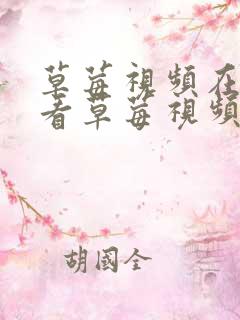 草莓視頻在
看草莓視頻
胡國全